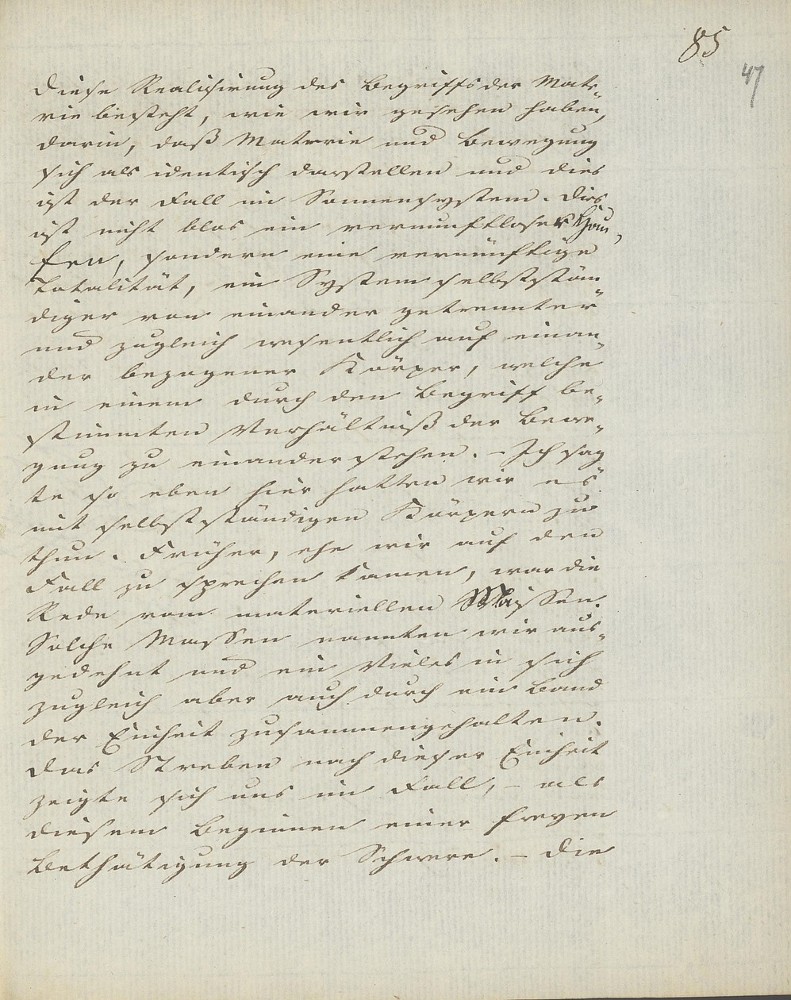 85
47
Diese Realisirung des Begriffs der Mate-
rie besteht, wie wir gesehen haben,
darin, daß Materie und Bewegung
sich als identisch darstellen und dies
ist der Fall im Sonnensystem. Dies
ist nicht blos ein vernunftloser Hau-
fen, sondern eine vernünftige
Totalität, ein System selbststän-
diger von einander getrennter
und zugleich wesentlich auf einan-
der bezogener Körper, welche
in einem durch den Begriff be-
stimmten Verhältniß der Bewe-
gung zu einander stehen. – Ich sag
te so eben hier hatten wir es
mit selbstständigen Körpern zu
thun. Früher, ehe wir auf den
Fall zu sprechen kamen, war die
Rede vom materiellen Massen.
Solche Massen nannten wir aus-
gedehnt und ein Vieles in sich
zugleich aber auch durch ein Band
der Einheit zusammengehalten.
Das Streben nach dieser Einheit
zeigte sich uns im Fall, – als
diesem Beginnen einer freyen
Bethätigung der Schwere. – Die